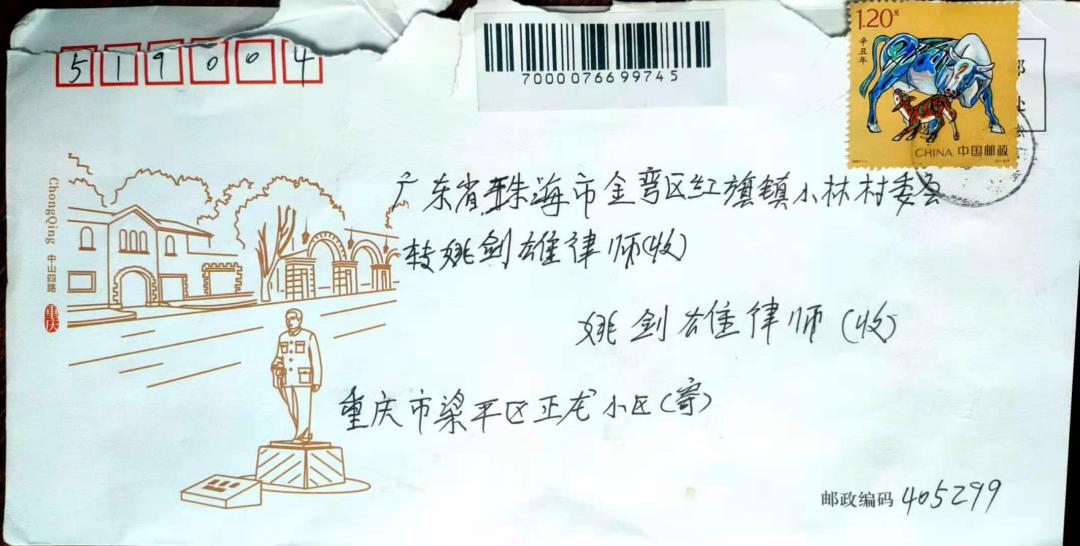 519004
7000076699745
1.20元
辛丑年
CHINA 中国邮政
广东省珠海市金弯区红旗镇小林村委会
转姚剑雄律师(收)
姚剑雄律师(收)
重庆市梁平区正龙小区(寄)
ChongQing 中山四路
重庆
邮政编码 405299